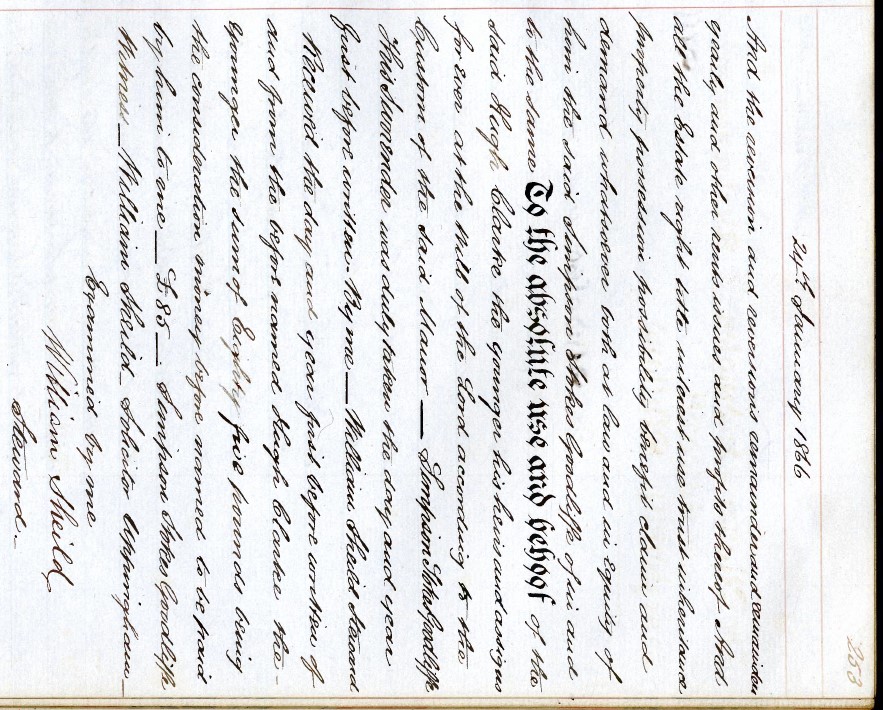 253
24th January 1866
And the reversion and reversions remainder and remainders
yearly and other rents issues and profits thereof And
all the Estate right title interest use trust inheritance
property possession possibility benefit claim and
demand whatsoever both at law and in Equity of
him the said Simpson Stokes Goodliffe of in and
to the same To the absolute use and behoof of the
said Hugh Clarke the younger his heirs and assigns
for ever at the Will of the Lord according to the
Custom of the said Manor — Simpson Stokes Goodliffe
This Surrender was duly taken the day and year
first before written. By me — William Sheild Steward
Received the day and year first before written of
and from the before named Hugh Clarke the -
younger the sum of Eighty five pounds being
the consideration money before named to be paid
by him to me — £85 — Simpson Stokes Goodliffe
Witness — William Sheild — Solicitor Uppingham —
Examined by me
William Sheild
Steward. -